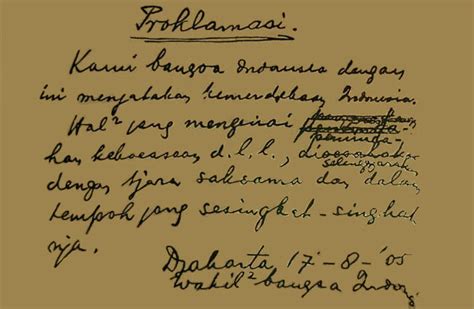 Proklamasi.
Kami bangsa Indonesia dengan
ini menjatakan kemerdekaan Indonesia.
Hal² jang mengenai
peminda-
han kekoeasaan d.l.l., diselenggarakan
dengan tjara saksama dan dalam
tempoh jang sesingkat-singkat
nja.
Djakarta 17-8-'05
Wakil² bangsa Indon.